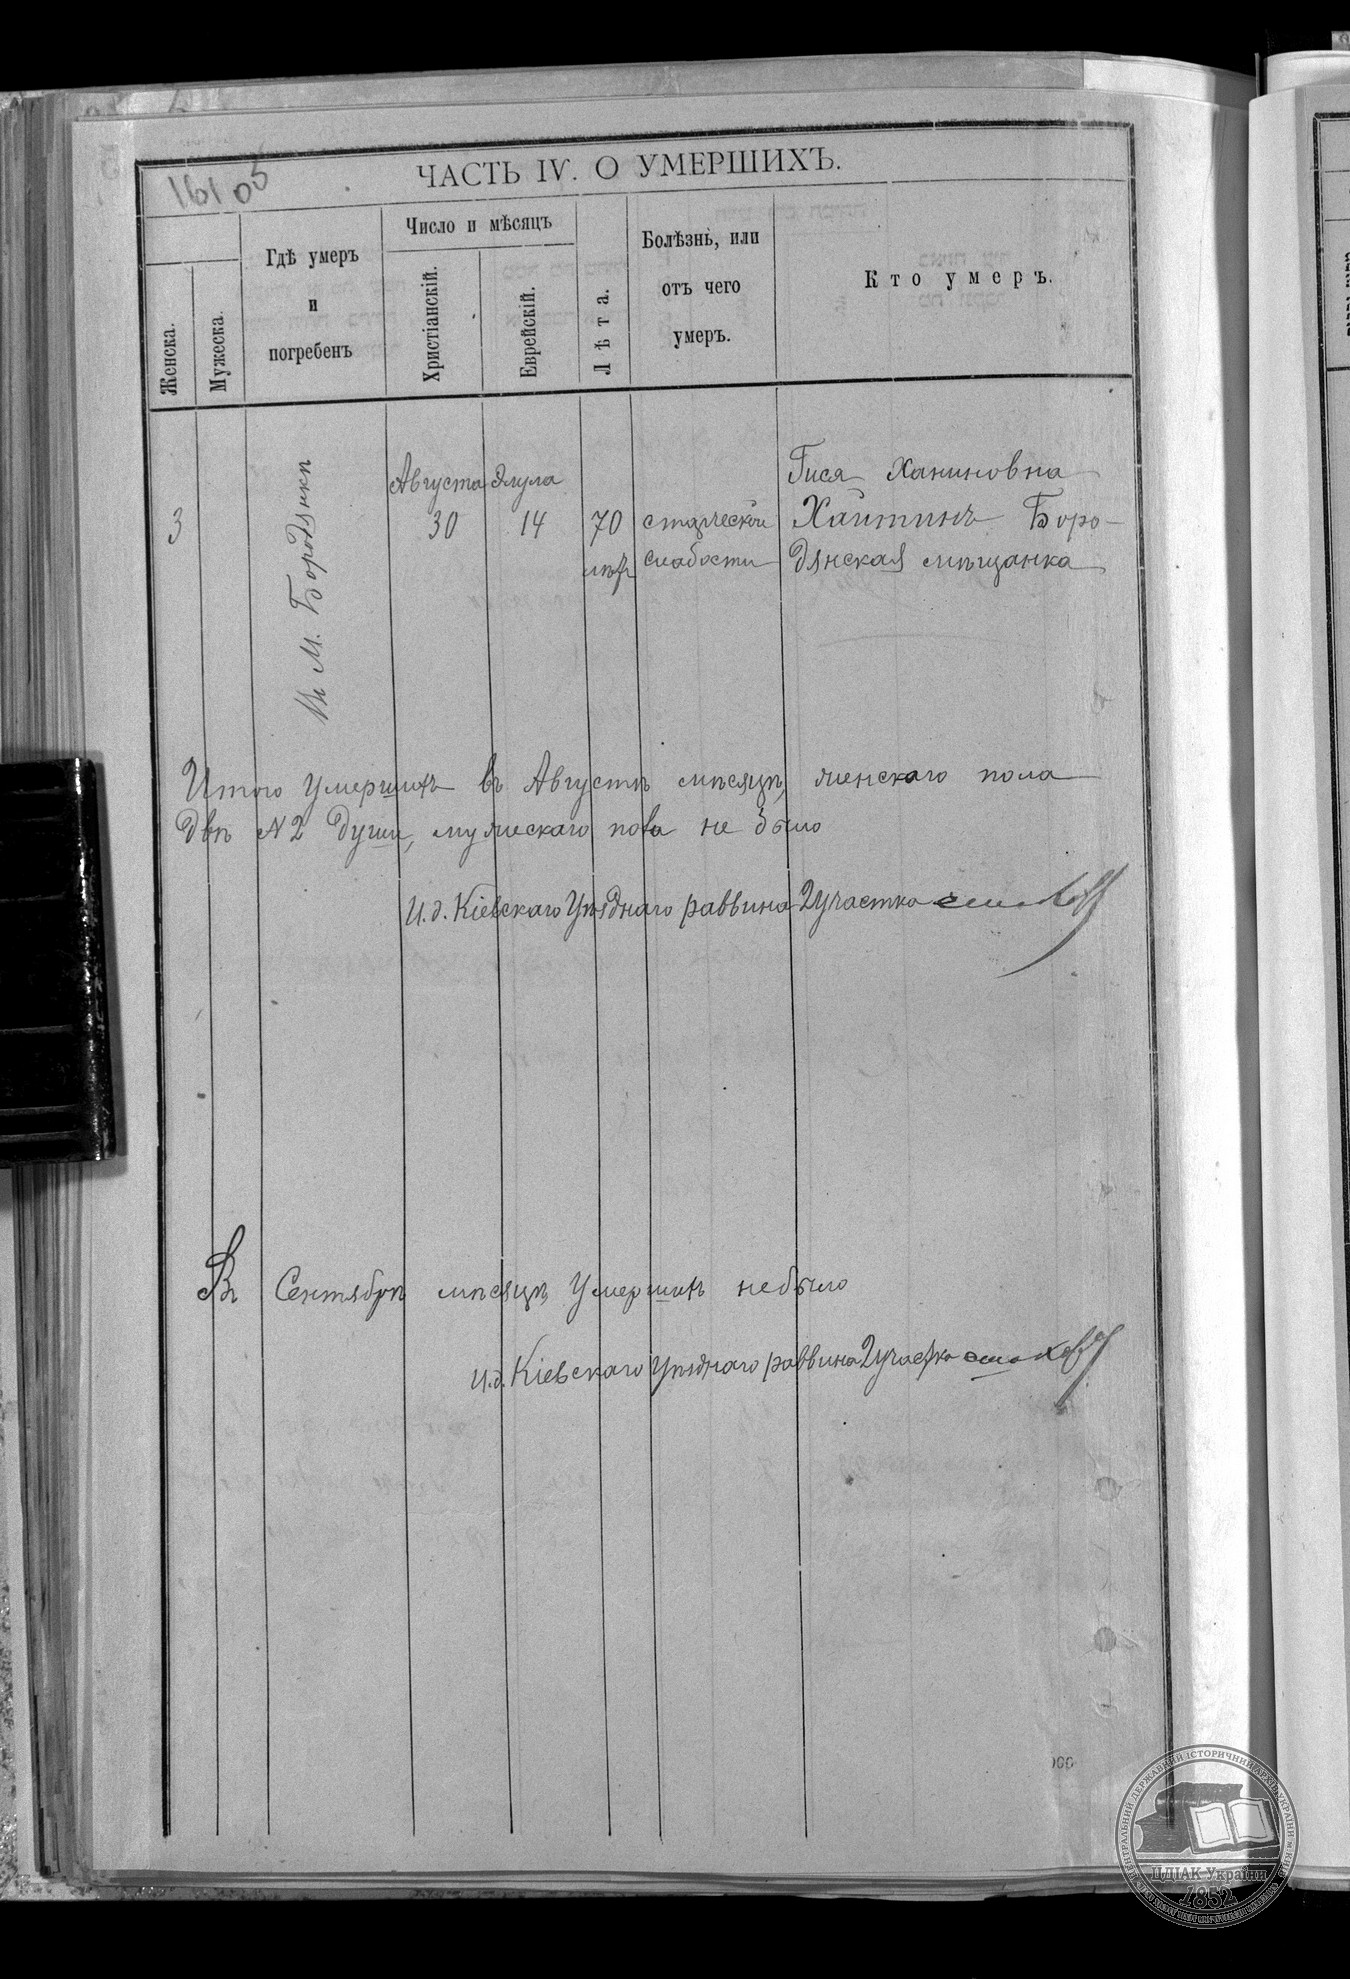 ЧАСТЬ IV. О УМЕРШИХЪ.
Женска.
Мужеска.
Гдѣ умеръ
и
погребенъ
Число и мѣсяцъ
Христіанскій.
Еврейскій.
Лѣта.
Болѣзнь, или
отъ чего
умеръ.
Кто умеръ.
3
въ М. Бородянки
Августа
30
Элула
14
70
лѣтъ
старческой
слабости
Гися Ханиновна
Хайтинъ Боро-
дянская мѣщанка
Итого умершихъ въ Августѣ мѣсяцѣ, женскаго пола
двѣ №2 души, мужескаго пола не было
И.д. Кіевскаго Уѣзднаго раввина 2 участка
Въ Сентябрѣ мѣсяцѣ умершихъ небыло
И.д. Кіевскаго Уѣзднаго раввина 2 участка
ЦЕНТРАЛЬНИЙ ДЕРЖАВНИЙ ІСТОРИЧНИЙ АРХІВ УКРАЇНИ м.КИЇВ
ЦДІАК України
1852